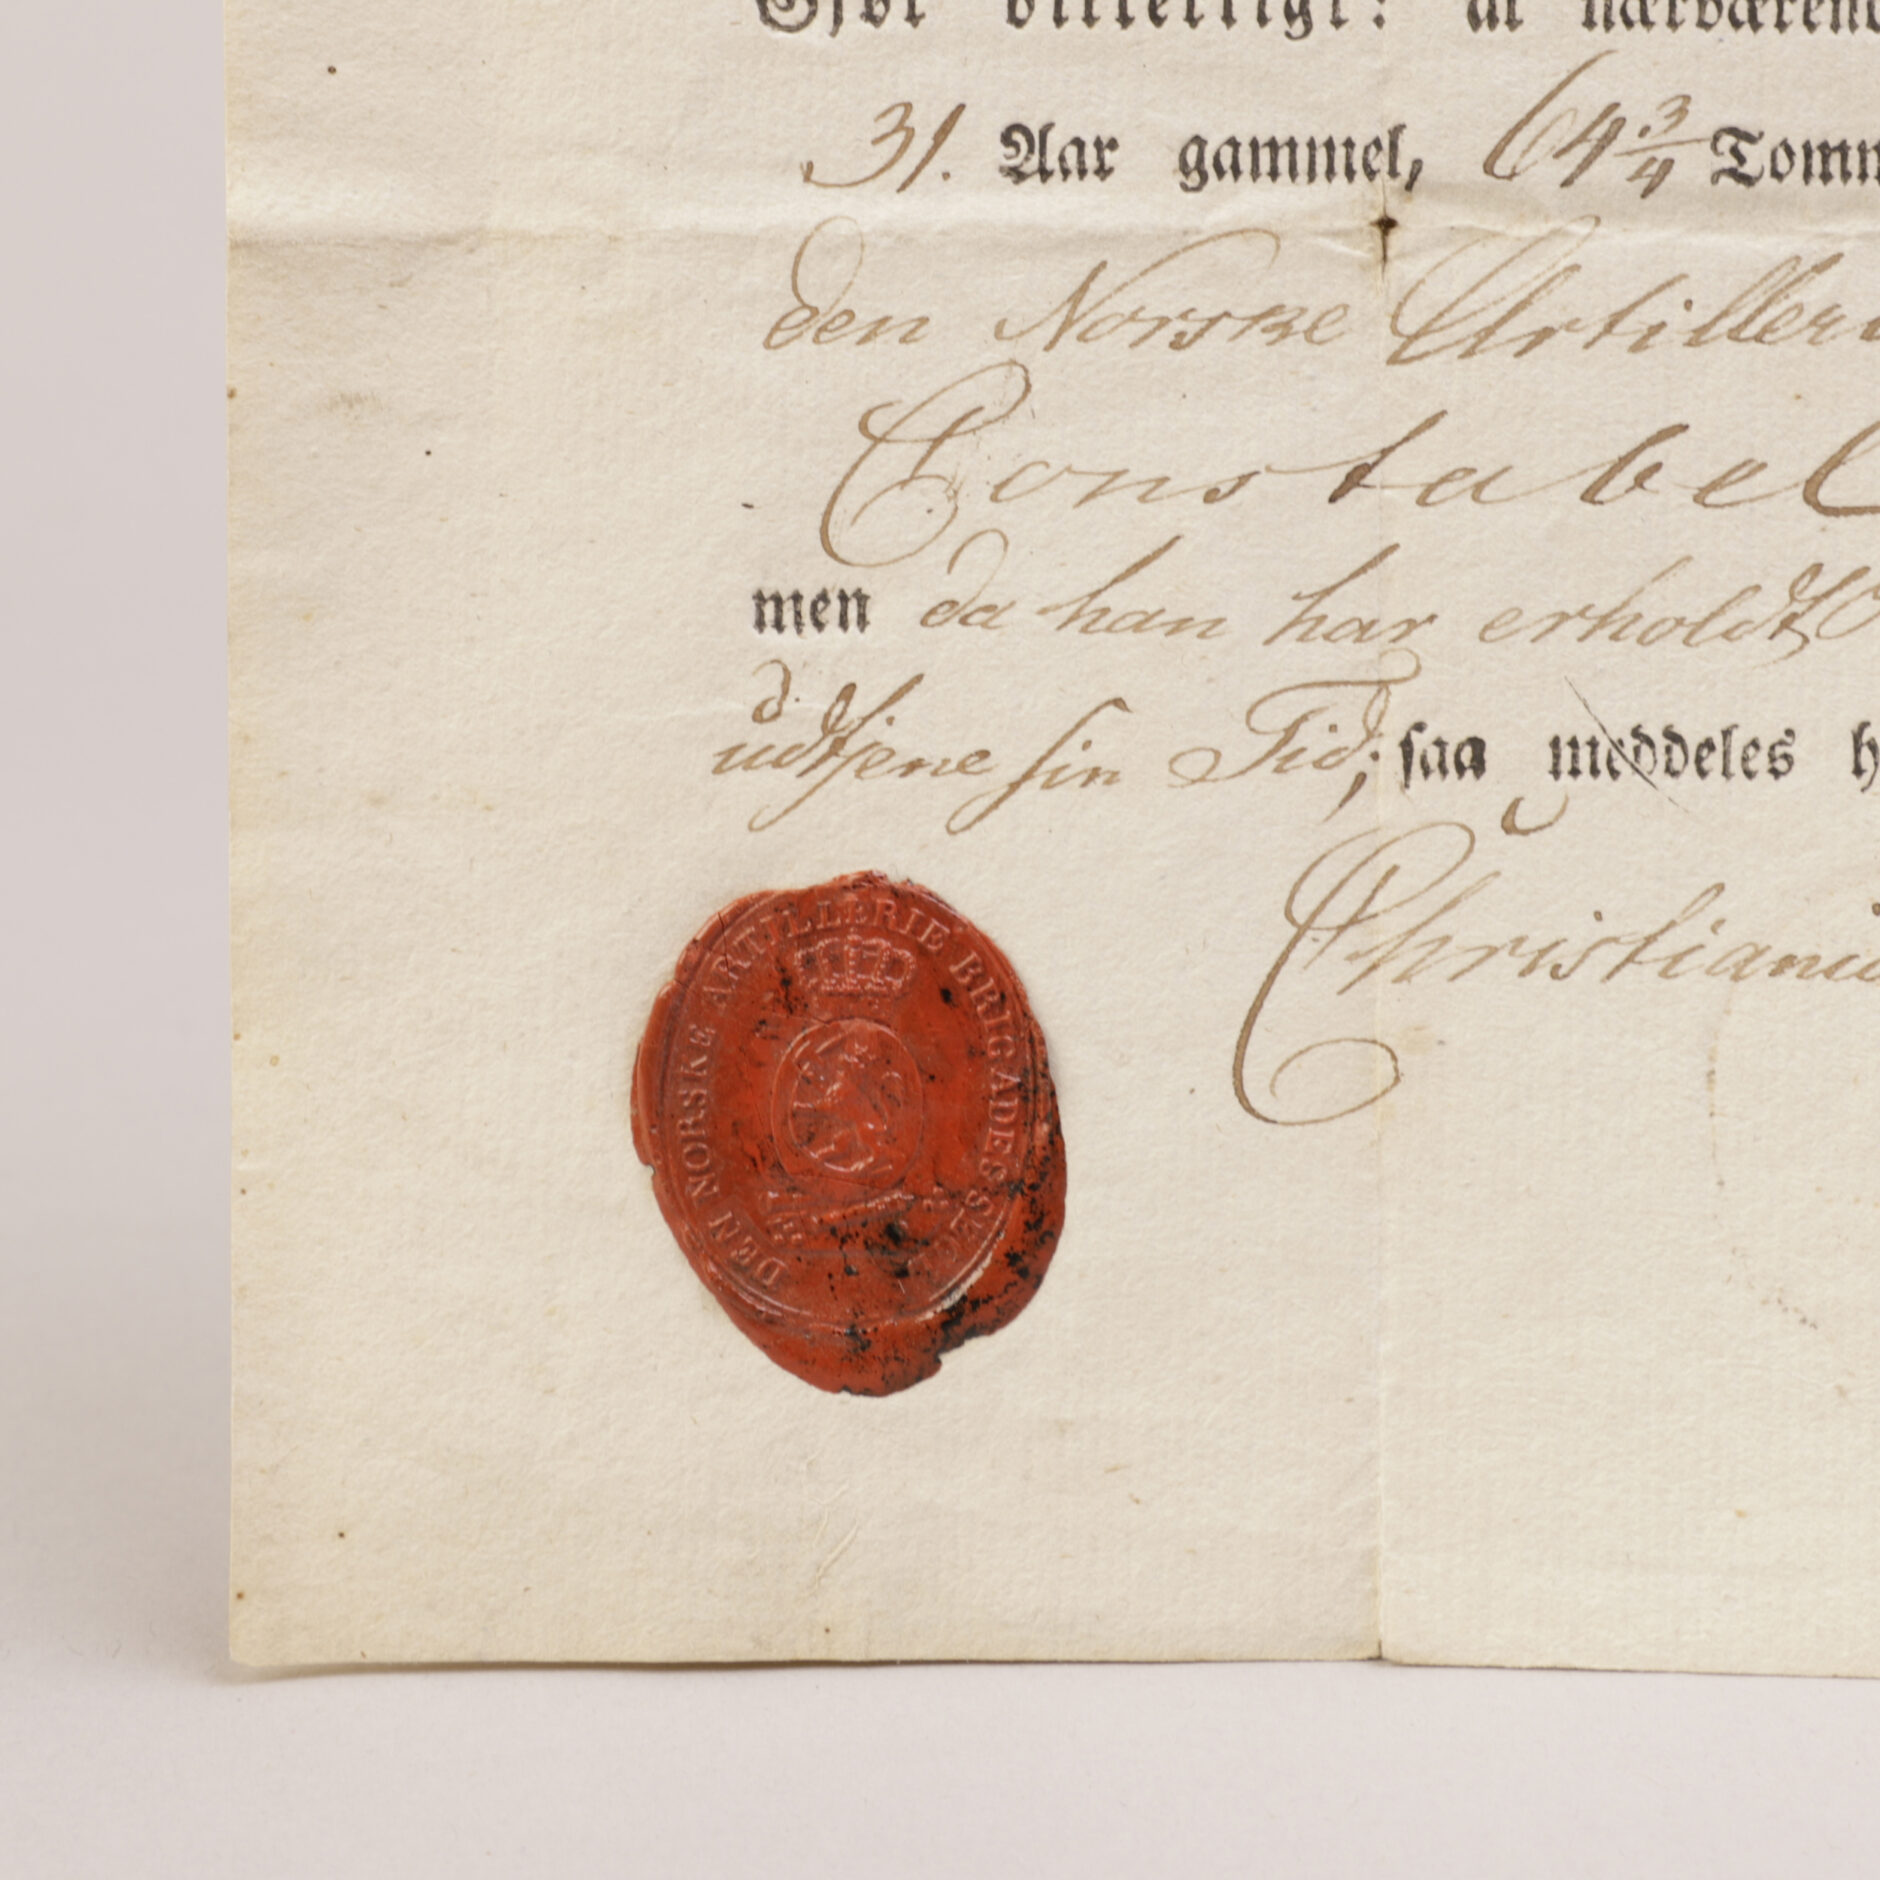 vitterligt: at nærværend
31. Aar gammel, 64 3/4 Tomm
den Norske Artilleri
Constabel
men da han har erholdt
udtjene sin Tid; saa meddeles h
Christiania
DEN NORSKE ARTILLERIE BRIGADES